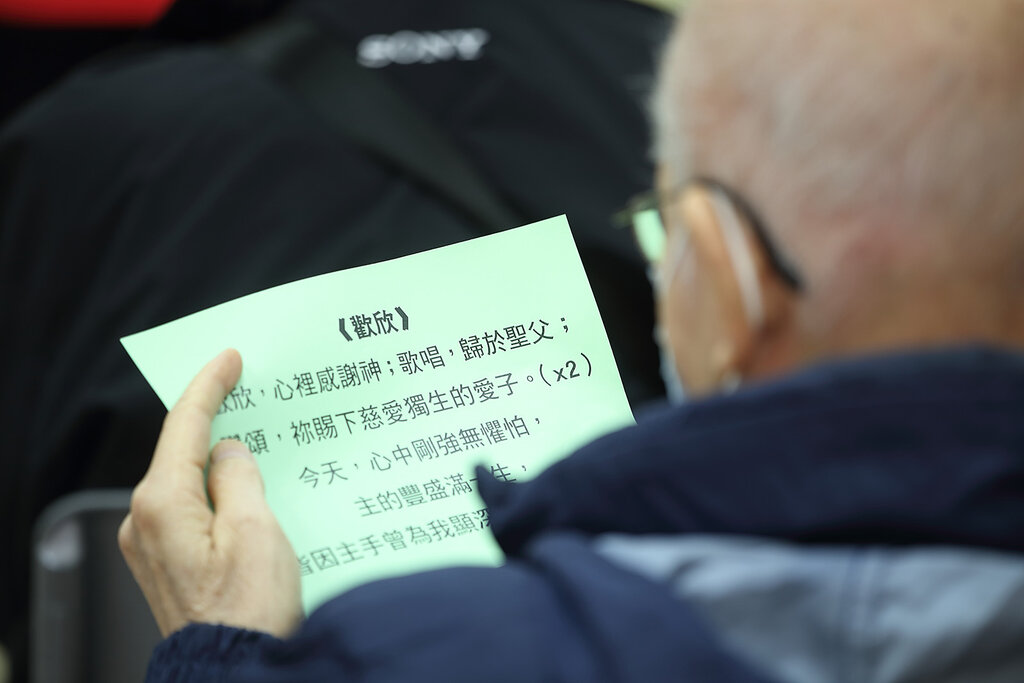 SONY
《歡欣》
欣，心裡感謝神；歌唱，歸於聖父；
頌，祢賜下慈愛獨生的愛子。(x2)
今天，心中剛強無懼怕，
主的豐盛滿一生，
皆因主手曾為我顯深